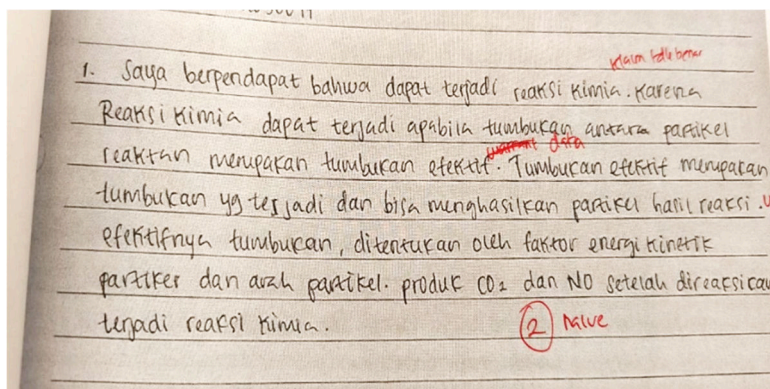 klaim tdk benar
1. Saya berpendapat bahwa dapat terjadi reaksi kimia. Karena
Reaksi kimia dapat terjadi apabila tumbukan antara partikel
reaktan merupakan tumbukan efektif. Tumbukan efektif merupakan
data
tumbukan yg terjadi dan bisa menghasilkan partikel hasil reaksi.
efektifnya tumbukan, ditentukan oleh faktor energi kinetik
partikel dan arah partikel. produk CO2 dan NO setelah direaksikan
terjadi reaksi kimia.
2 Naive